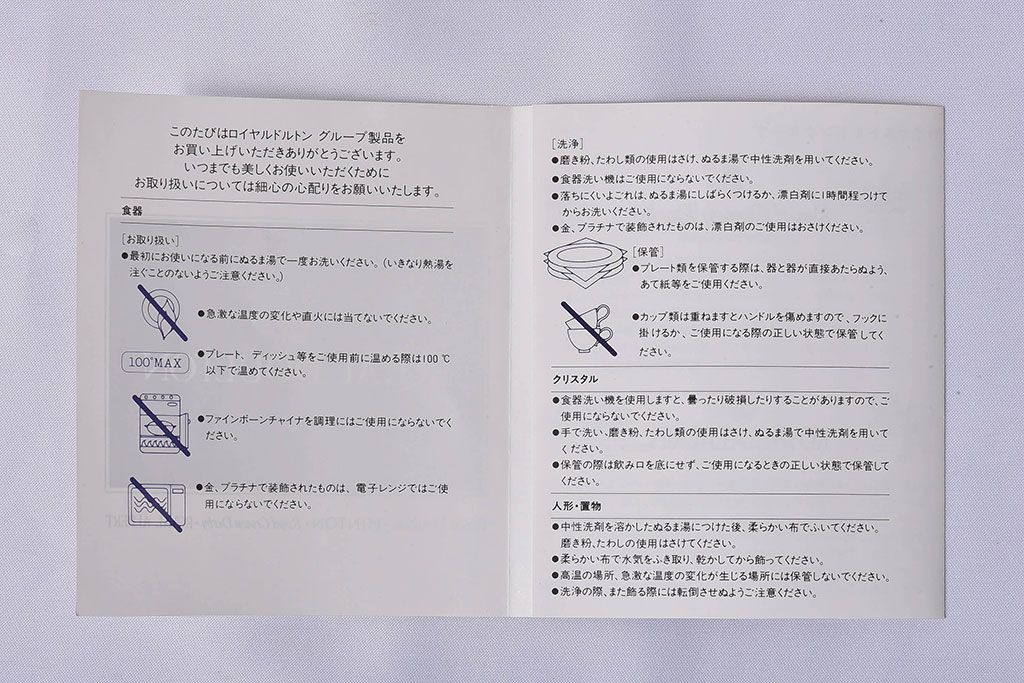 このたびはロイヤルドルトン グループ製品を
お買い上げいただきありがとうございます。
いつまでも美しくお使いいただくために
お取り扱いについては細心の心配りをお願いいたします。
食器
[お取り扱い]
●最初にお使いになる前にぬるま湯で一度お洗いください。(いきなり熱湯を
注ぐことのないようご注意ください。)
●急激な温度の変化や直火には当てないでください。
100°MAX
●プレート、ディッシュ等をご使用前に温める際は100℃
以下で温めてください。
●ファインボーンチャイナを調理にはご使用にならないでく
ださい。
●金、プラチナで装飾されたものは、電子レンジではご使
用にならないでください。
[洗浄]
●磨き粉、たわし類の使用はさけ、ぬるま湯で中性洗剤を用いてください。
●食器洗い機はご使用にならないでください。
●落ちにくいよごれは、ぬるま湯にしばらくつけるか、漂白剤に1時間程つけて
からお洗いください。
●金、プラチナで装飾されたものは、漂白剤のご使用はおさけください。
[保管]
●プレート類を保管する際は、器と器が直接あたらぬよう、
あて紙等をご使用ください。
●カップ類は重ねますとハンドルを傷めますので、フックに
掛けるか、ご使用になる際の正しい状態で保管してく
ださい。
クリスタル
●食器洗い機を使用しますと、曇ったり破損したりすることがありますので、ご
使用にならないでください。
●手で洗い、磨き粉、たわし類の使用はさけ、ぬるま湯で中性洗剤を用いて
ください。
●保管の際は飲み口を底にせず、ご使用になるときの正しい状態で保管して
ください。
人形・置物
●中性洗剤を溶かしたぬるま湯につけた後、柔らかい布でふいてください。
磨き粉、たわしの使用はさけてください。
●柔らかい布で水気をふき取り、乾かしてから飾ってください。
●高温の場所、急激な温度の変化が生じる場所には保管しないでください。
●洗浄の際、また飾る際には転倒させぬようご注意ください。